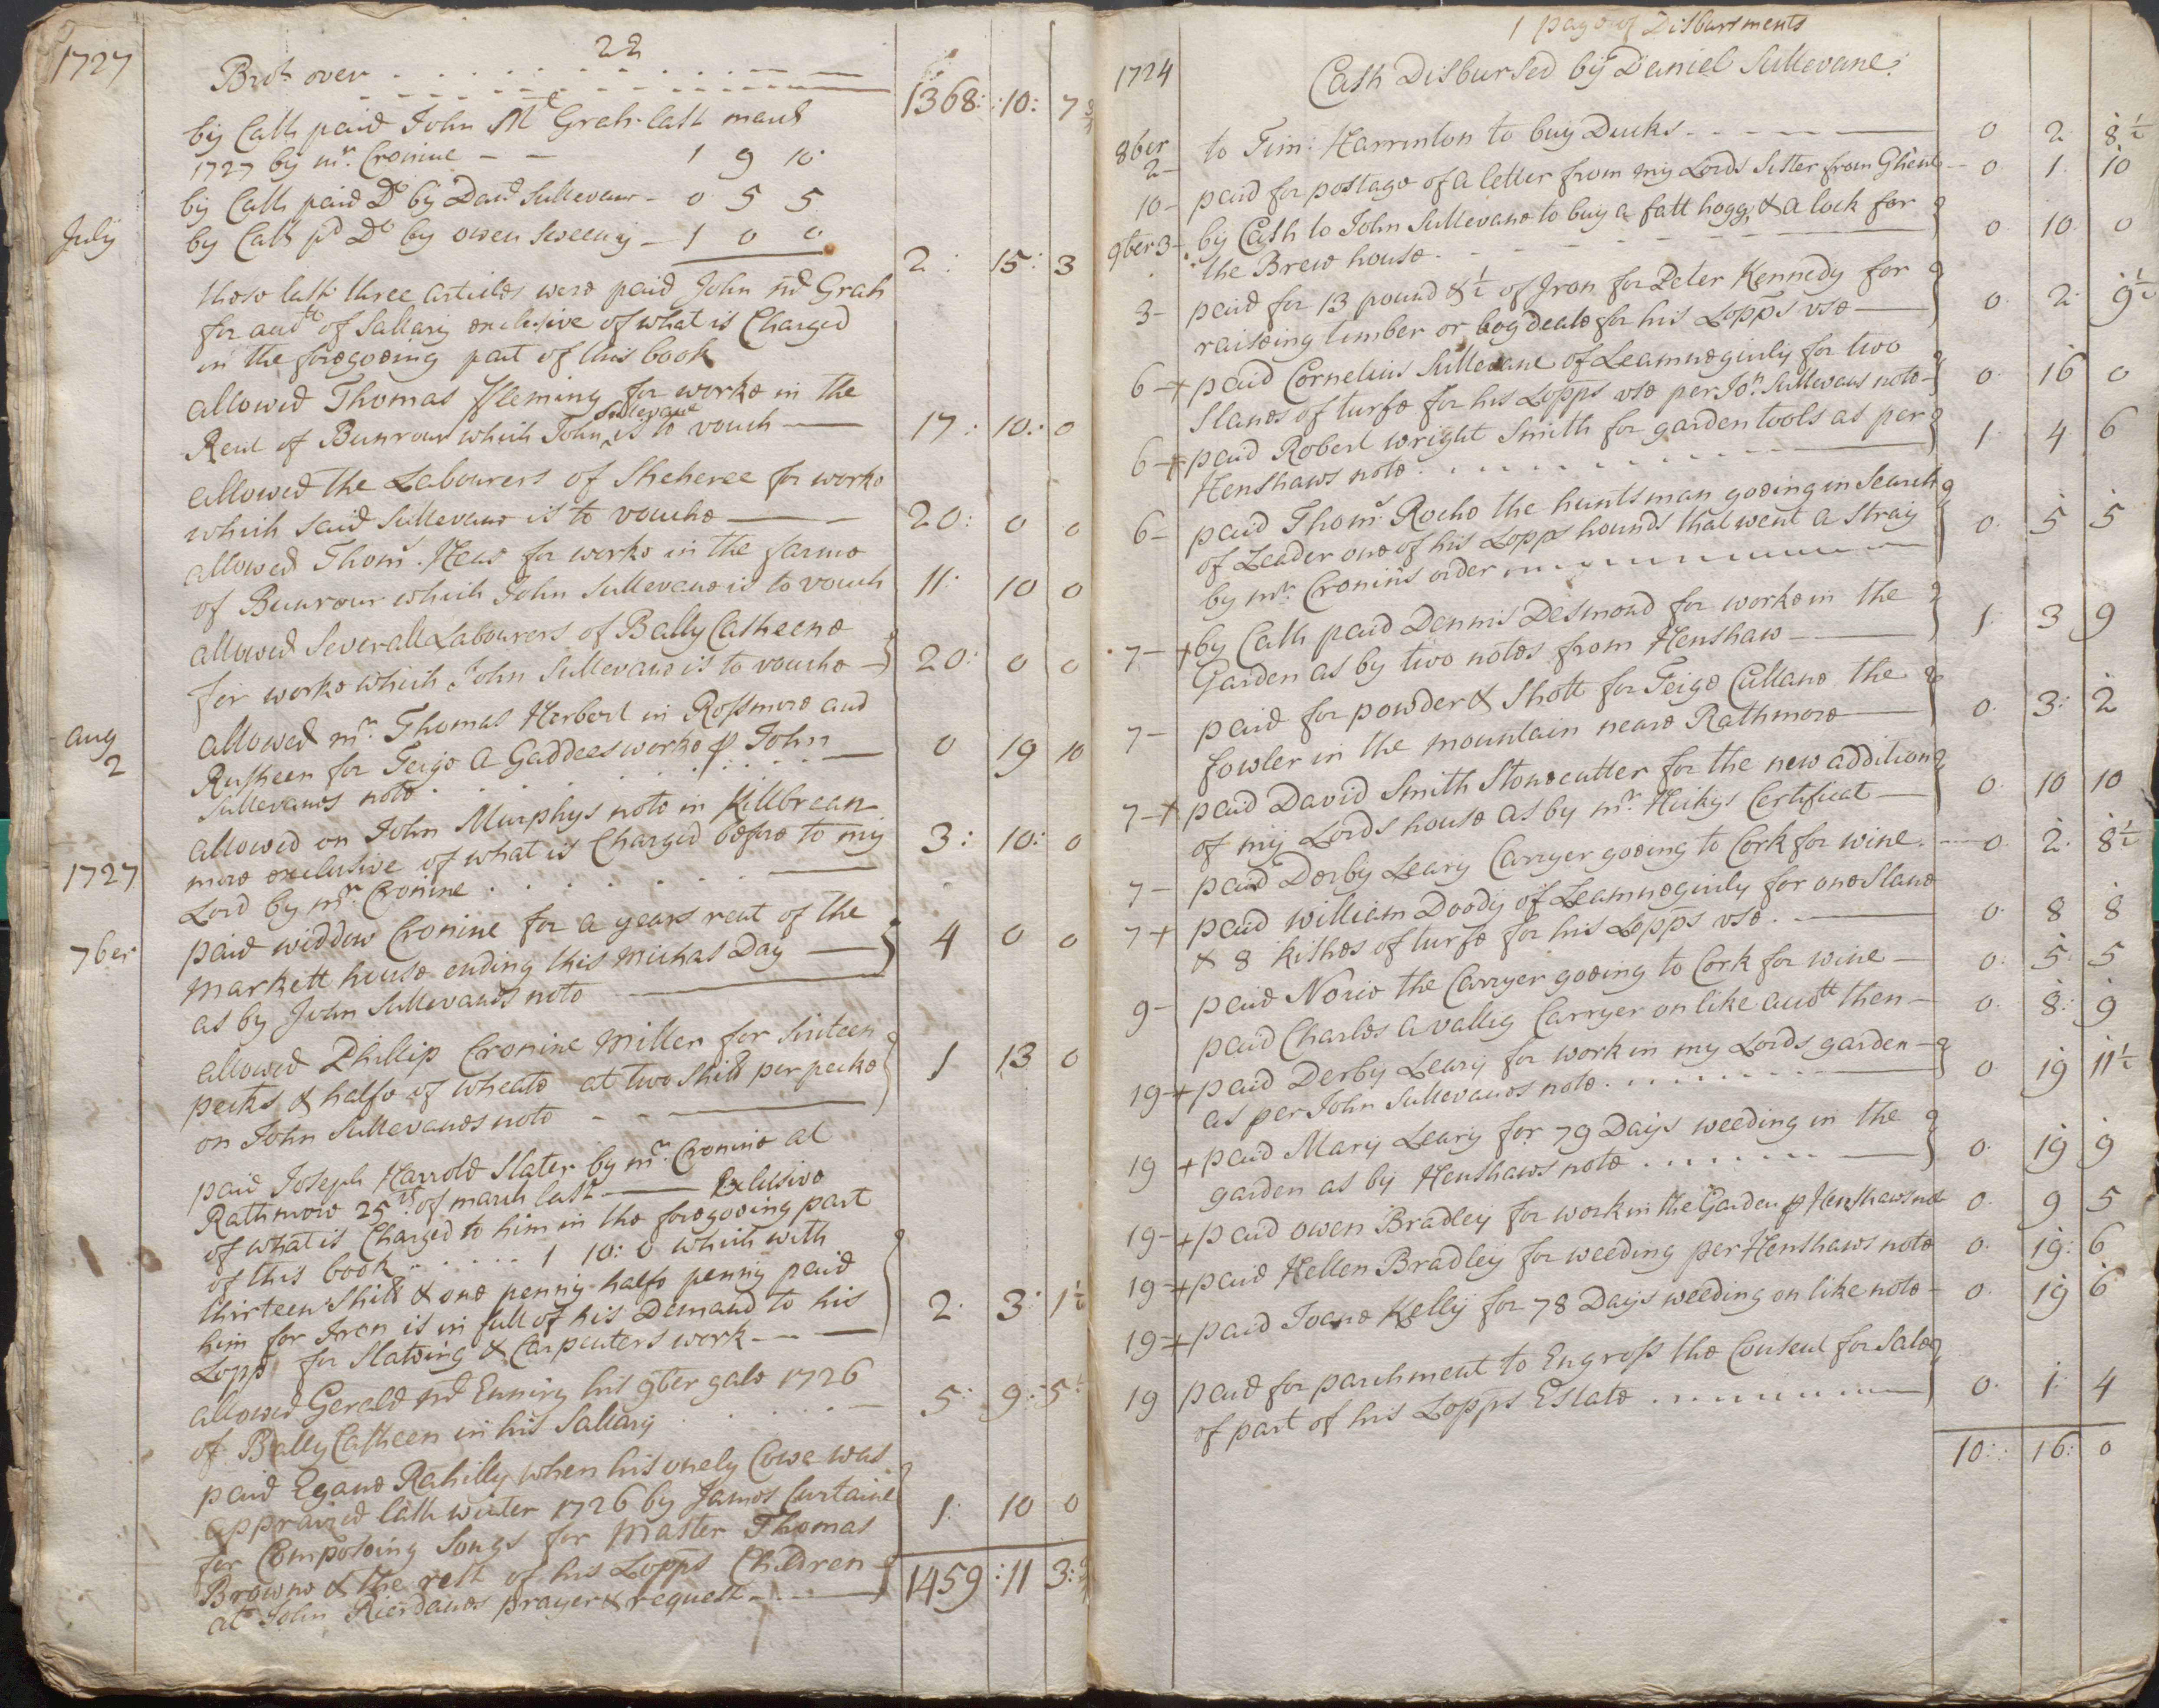 22
1727
Brot. over 1368: 10: 7 3/4
by Cash paid John Mc Grah last march
1727 by mr. Cronine 1 9 10
by Cash paid Do by Danl Sullevane 0 5 5
July by Cash pd Do by owen Sweeny 1 0 0 2: 15: 3
those last three articles were paid John mc Grah
for acctt of Sallary exclusive of what is Charged
in the foregoeing part of this book
allowed Thomas Fleming for worke in the
Rent of Bunrour which John Sullevane is to vouch 17: 10: 0
allowed the Labourers of Sheheree for worke
which said Sullevane is to vouche 20: 0 0
allowed Thoms. Heas for worke in the farme
of Bunrour which John Sullevane is to vouch 11: 10 0
allowed Severall Labourers of Bally Casheene
for worke which John Sullevane is to vouche 20: 0 0
aug 2 allowed mr. Thomas Herbert in Rossmore and
Rusheen for Teige a Gaddees worke p John
Sullevanes note 0 19 10
allowed on John Murphys note in Killbrean
1727 more exclusive of what is Charged before to my
Lord by mr. Cronine 3: 10: 0
7ber paid widdow Cronine for a years rent of the
markett house ending this michas Day
as by John Sullevanes note 4 0 0
allowed Phillip Cronine Miller for Sixteen
pecks & halfe of wheate at two shills per pecke
on John Sullevanes note 1 13 0
paid Joseph Harrold Slater by mr. Cronine at
Rathmore 25th. of march last Exclusive
of what is Charged to him in the foregoeing part
of this book 1 10: 0 which with
thirteen shills & one penny halfe penny paid
him for Iron is in full of his Demand to his
Lopp for Slateing & Carpenters work 2: 3: 1 1/2
allowed Gerald mc Enniry his 9ber gale 1726
of Bally Casheen in his Sallary 5: 9: 5 1/2
paid Egane Rahilly when his onely Cowe was
appraized last winter 1726 by James Curtaine
for Composeing Songs for Master Thomas
Browne & the rest of his Lopps Children
at John Rierdanes prayer & request 1: 10 0
1459: 11 3: 3/4
1 page of Disbursments
1724 Cash Disbursed by Daniel Sullevane:
8ber 2 to Tim: Harrinton to buy Ducks 0 2 8 1/2
10 paid for postage of a letter from my Lords Sister from Ghent 0 1 10
9ber 3 by Cash to John Sullevane to buy a fatt hogg & a lock for
the Brew house 0 10 0
3 paid for 13 pound & 1/2 of Iron for Peter Kennedy for
raiseing timber or bog deale for his Lopps use 0 2 9 1/2
6 + paid Cornelius Sullevane of Leamneginly for two
Slanes of turfe for his Lopps use per Jon. Sullevans note 0 16 0
6 + paid Robert wright Smith for garden tools as per
Henshaws note 1 4 6
6 paid Thoms. Roche the huntsman goeing in Search
of Leader one of his Lopps hounds that went a Stray
by mr. Cronins order 0 5 5
7 + by Cash paid Dennis Desmond for worke in the
Garden as by two notes from Henshaw 1: 3 9
7 paid for powder & Shott for Teige Cullane the
fowler in the mountain neare Rathmore 0 3: 2
7 + paid David Smith Stonecutter for the new addition
of my Lords house as by mr. Hickys Certificat 0 10 10
7 paid Derby Leary Carryer goeing to Cork for wine 0 2 8 1/2
7 + paid William Doody of Leamneginly for one Slane
& 8 kishes of turfe for his Lopps use 0 8 8
9 paid Norie the Carryer goeing to Cork for wine 0: 5 5
paid Charles a vally Carryer on like acctt then 0: 8: 9
19 + paid Derby Leary for work in my Lords garden
as per John Sullevanes note 0 19 11 1/2
19 + paid Mary Leary for 79 Days weeding in the
garden as by Henshaws note 0 19 9
19 + paid owen Bradley for work in the Garden p Henshaws note 0 9 5
19 + paid Hellen Bradley for weeding per Henshaws note 0 19: 6
19 + paid Joane Kelly for 78 Days weeding on like note 0 19 6
19 paid for parchment to Engross the Consent for Sale
of part of his Lopps Estate 0 1: 4
10: 16: 0